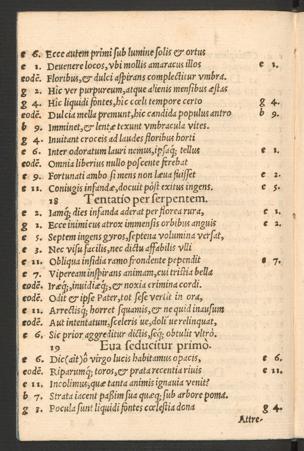 e 6. Ecce autem primi sub lumine solis & ortus
e 1. Deuenere locos, vbi mollis amaracus illos e 1.
eodē. Floribus, & dulci aspirans complectitur vmbra.
g 2. Hic ver purpureum, atque alienis mensibus æstas
g 4. Hic liquidi fontes, hic cœli tempore certo g 4.
eodē. Dulcia mella premunt, hic candida populus antro b 9.
b 9. Imminet, & lentæ texunt vmbracula vites.
g 4. Inuitant croceis ad laudes floribus horti
e 6. Inter odoratum lauri nemus, ipsaq; tellus e 1.
eodē. Omnia liberius nullo poscente ferebat
e 9. Fortunati ambo si mens non læua fuisset e 2.
e 11. Coniugis infandæ, docuit pòst exitus ingens. e 5.
18 Tentatio per serpentem.
e 2. Iamq; dies infanda aderat per florea rura, e 1.
g 1. Ecce inimicus atrox immensis orbibus anguis e 2.
e 5. Septem ingens gyros, septena volumina versat,
e 3. Nec visu facilis, nec dictu affabilis vlli
e 11. Obliqua inuidia ramo frondente pependit e 7.
e 7. Vipeream inspirans animam, cui tristia bella
eodē. Iræq;, insidiæq;, & noxia crimina cordi.
eodē. Odit & ipse Pater, tot sese vertit in ora,
e 11. Arrectisq; horret squamis, & ne quid inausum
eodē. Aut intentatum, sceleris ue, doli ue relinquat,
e 6. Sic prior aggreditur dictis, seq; obtulit vltrò.
19 Eua seducitur primò.
e 6. Dic(ait)ô virgo lucis habitamus opacis, e 6.
eodē. Riparumq; toros, & prata recentia riuis e 11.
e 11. Incolimus, quæ tanta animis ignauia venit?
b 7. Strata iacent paßim sua quæq; sub arbore poma.
g 3. Pocula sunt liquidi fontes cœlestia dona g 4.
Attre-